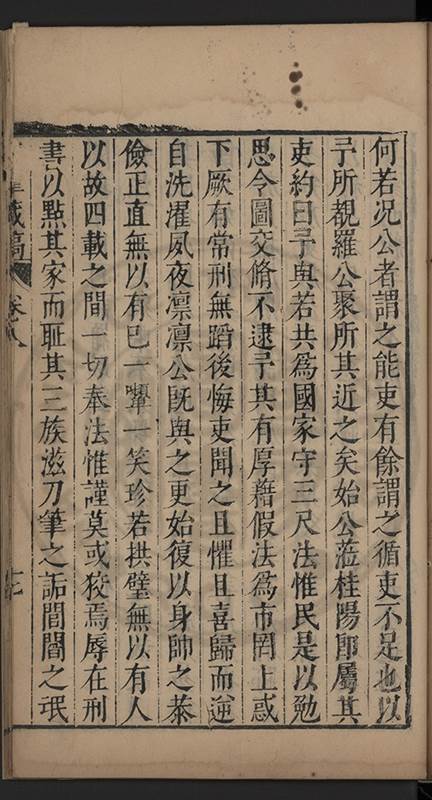 何若况公者謂之能吏有餘謂之循吏不足也以
予所覩羅公聚所其近之矣始公蒞桂陽即屬其
吏約曰予與若共爲國家守三尺法惟民是以勉
思令圖交脩不逮予其有厚藉假法爲市罔上惑
下厥有常刑無蹈後悔吏聞之且懼且喜歸而逆
自洗濯夙夜凛凛公既與之更始復以身帥之恭
儉正直無以有已一嚬一笑珍若拱璧無以有人
以故四載之間一切奉法惟謹莫或狡焉辱在刑
書以點其家而耻其三族滋刀筆之詬閭閻之珉
藏稿
卷八